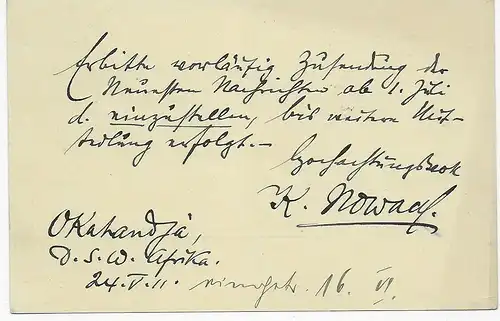 Erbitte vorläufig Zusendung der
Neuesten Nachrichten ab 1. Juli
d. einzustellen, bis weitere Mit-
teilung erfolgt.-
Hochachtungsvoll
K. Nowack.
Okahandja,
D. S. W. Afrika.
24. V. 11. eingetr. 16. VI.